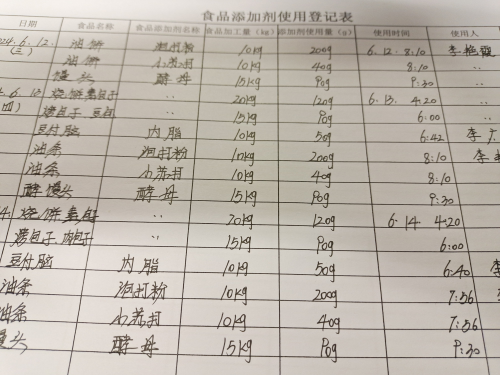 食品添加剂使用登记表
日期 食品名称 食品添加剂名称 食品加工量(kg) 添加剂使用量(g) 使用时间 使用人
24.6.12. 油饼 泡打粉 10kg 200g 6.12. 8:10 李艳霞
(三) 油饼 小苏打 10kg 40g 8:10 〃
馒头 酵母 15kg 90g 9:30 〃
4.6.13 烧饼素包子 〃 20kg 120g 6.13. 4:20 〃
(四) 烤包子 豆包 〃 15kg 90g 6:00 〃
豆付脑 内脂 10kg 50g 6:42 李
油条 泡打粉 10kg 200g 8:10 李
油条 小苏打 10kg 40g 8:10
酵馒头 酵母 15kg 90g 9:30
4. 烧饼素包 〃 20kg 120g 6.14 4:20
烤包子、肉包子 〃 15kg 90g 6:00
豆付脑 内脂 10kg 50g 6:40 李
油条 泡打粉 10kg 200g 7:56
油条 小苏打 10kg 40g 7:56
馒头 酵母 15kg 90g 9:30